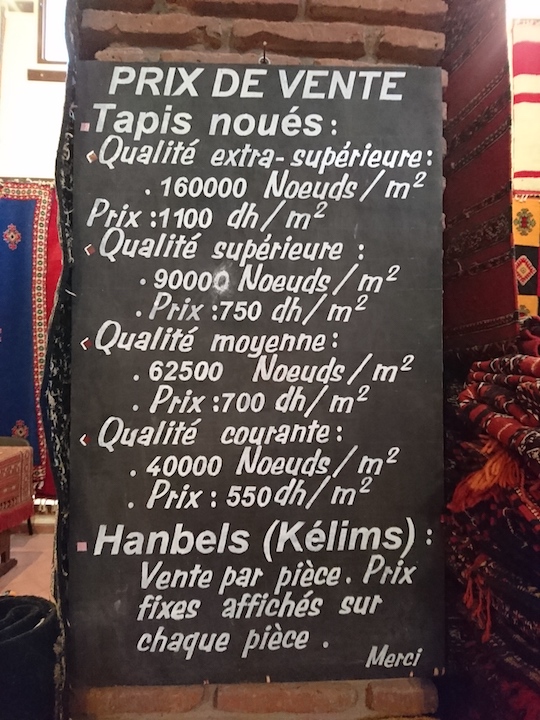 PRIX DE VENTE
Tapis noués :
Qualité extra-supérieure :
. 160000 Noeuds/m²
Prix : 1100 dh/m²
Qualité supérieure :
. 90000 Noeuds/m²
. Prix : 750 dh/m²
Qualité moyenne :
. 62500 Noeuds/m²
. Prix : 700 dh/m²
Qualité courante :
. 40000 Noeuds/m²
. Prix : 550 dh/m²
Hanbels (Kélims) :
Vente par pièce . Prix
fixes affichés sur
chaque pièce .
Merci